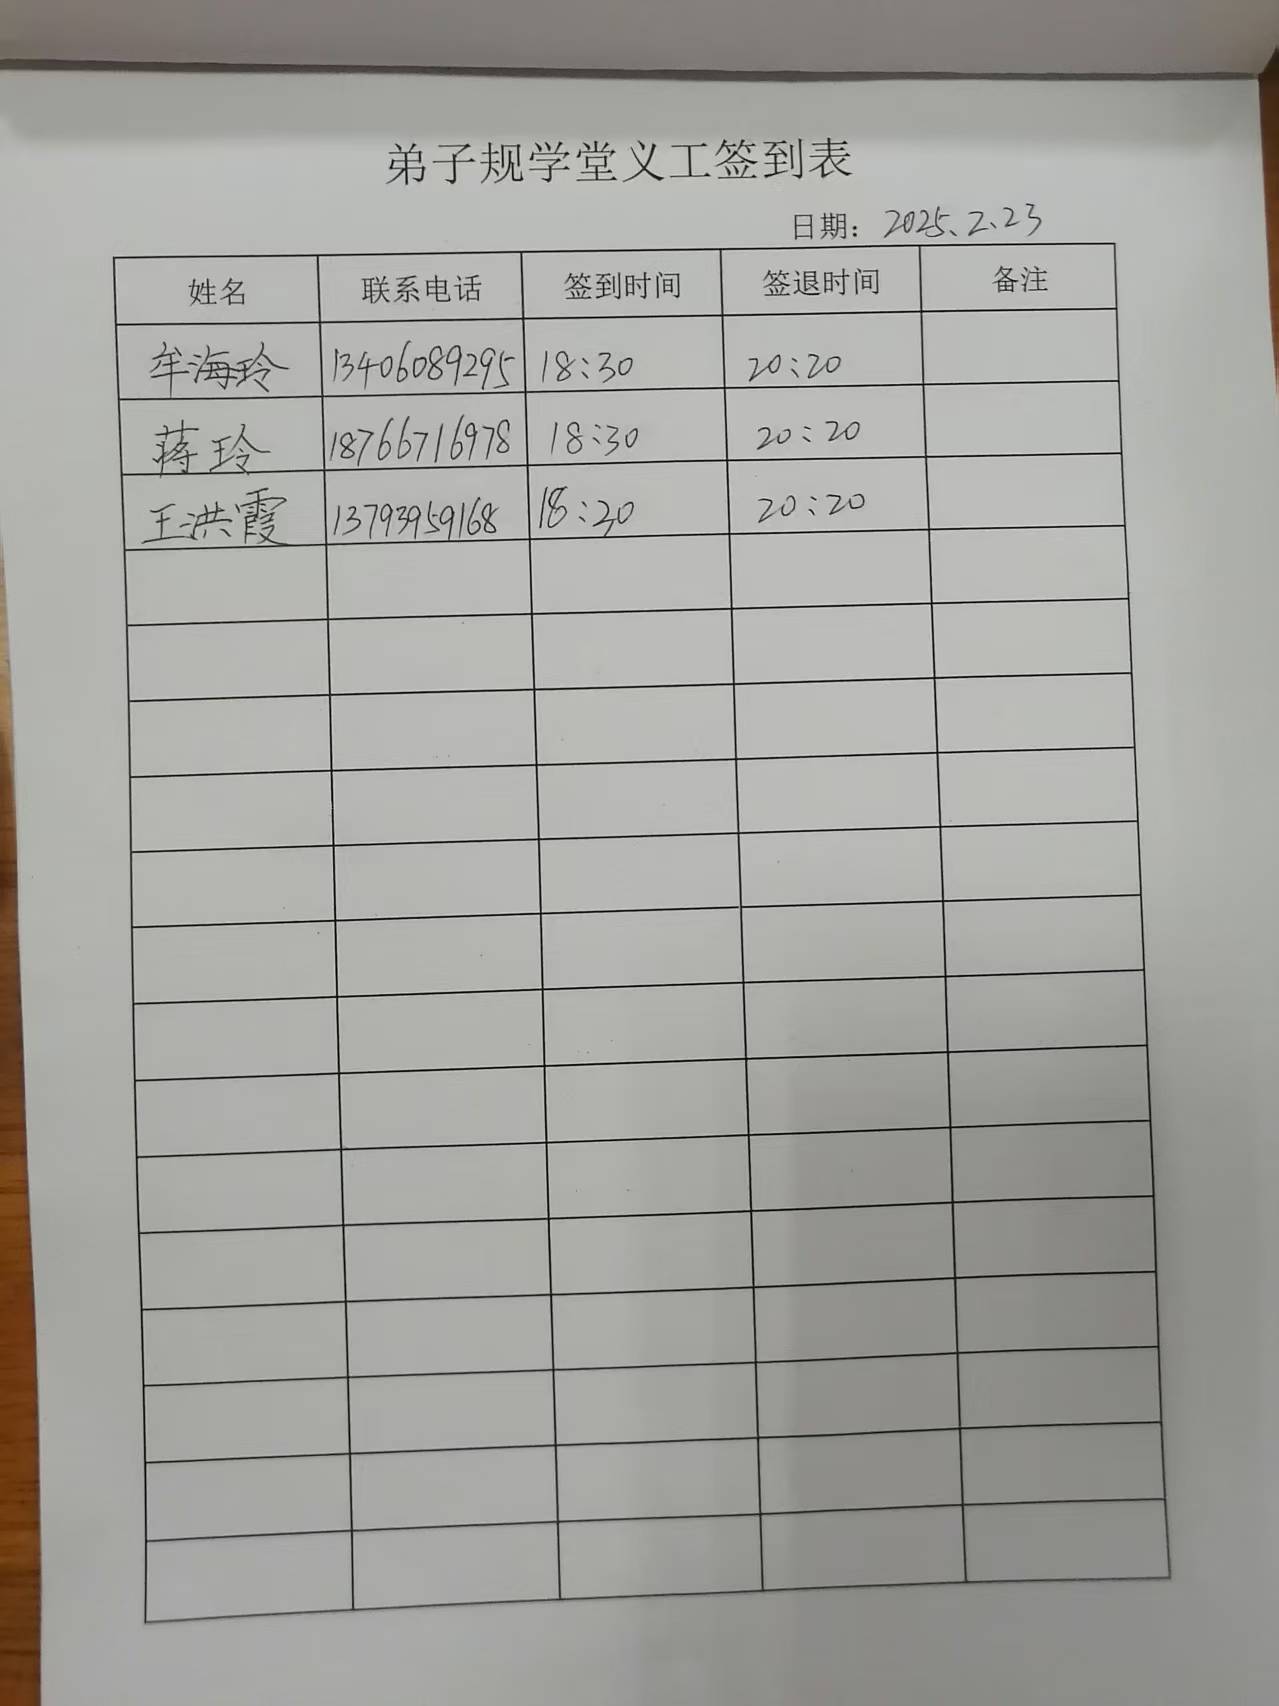 弟子规学堂义工签到表
日期： 2025.2.23
姓名 联系电话 签到时间 签退时间 备注
牟海玲 13406089295 18:30 20:20
蒋玲 18766716978 18:30 20:20
王洪霞 13793959168 18:20 20:20